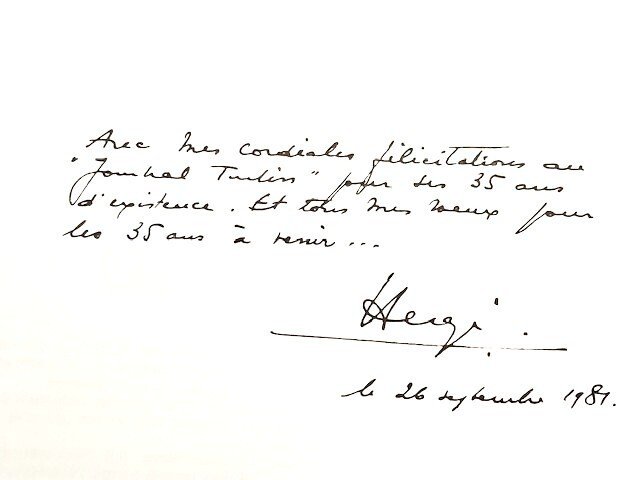 Avec mes cordiales félicitations au
"Journal Tintin" pour ses 35 ans
d'existence. Et tous mes voeux pour
les 35 ans à venir...
Hergé.
le 26 septembre 1981.